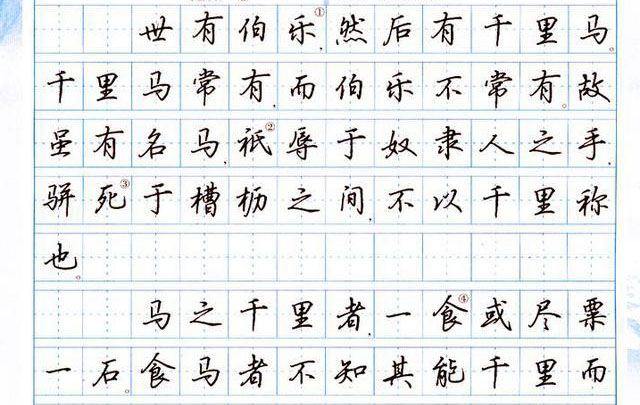 世有伯乐①,然后有千里马。
千里马常有,而伯乐不常有。故
虽有名马,祇②辱于奴隶人之手,
骈死③于槽枥之间,不以千里称
也。
马之千里者,一食④或尽粟
一石。食马者不知其能千里而